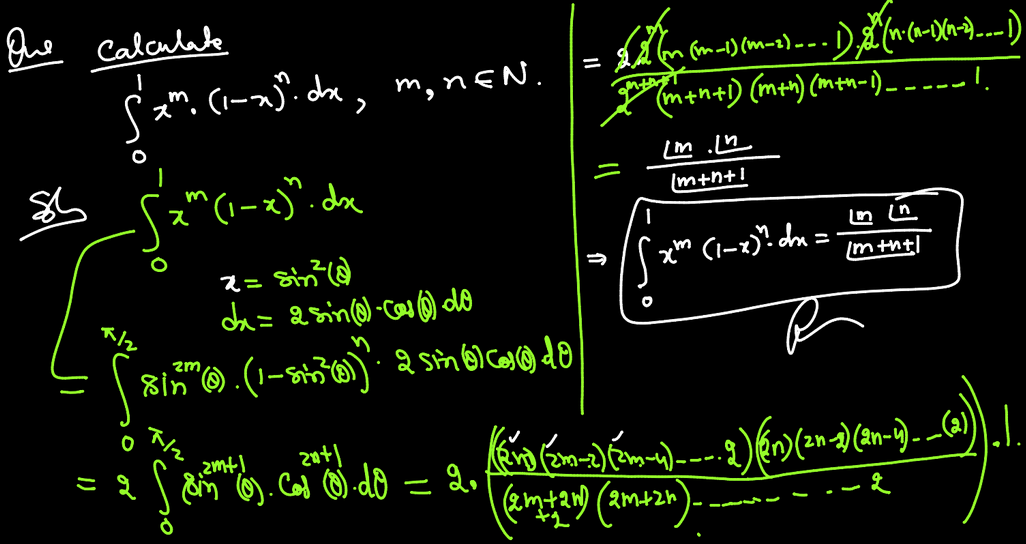 Que Calculate
∫₀¹ x^m · (1-x)^n · dx , m, n ∈ N.
Sol ∫₀¹ x^m (1-x)^n · dx
x = sin²(θ)
dx = 2 sin(θ) · cos(θ) dθ
= ∫₀^{π/2} sin^{2m}(θ) · (1 - sin²(θ))^n · 2 sin(θ) cos(θ) dθ
= 2 ∫₀^{π/2} sin^{2m+1}(θ) · cos^{2n+1}(θ) · dθ = 2 · (((2m)(2m-2)(2m-4) ----- 2)((2n)(2n-2)(2n-4) --- (2)) / ((2m+2n+2)(2m+2n) -------- 2)) . 1 .
= 2 2^m (m (m-1)(m-2) --- 1) . 2^n (n · (n-1)(n-2) --- 1) / 2^{m+n+1} (m+n+1)(m+n)(m+n-1) ------ 1.
= ⌊m . ⌊n / ⌊m+n+1
⇒ ∫₀¹ x^m (1-x)^n · dx = ⌊m ⌊n / ⌊m+n+1